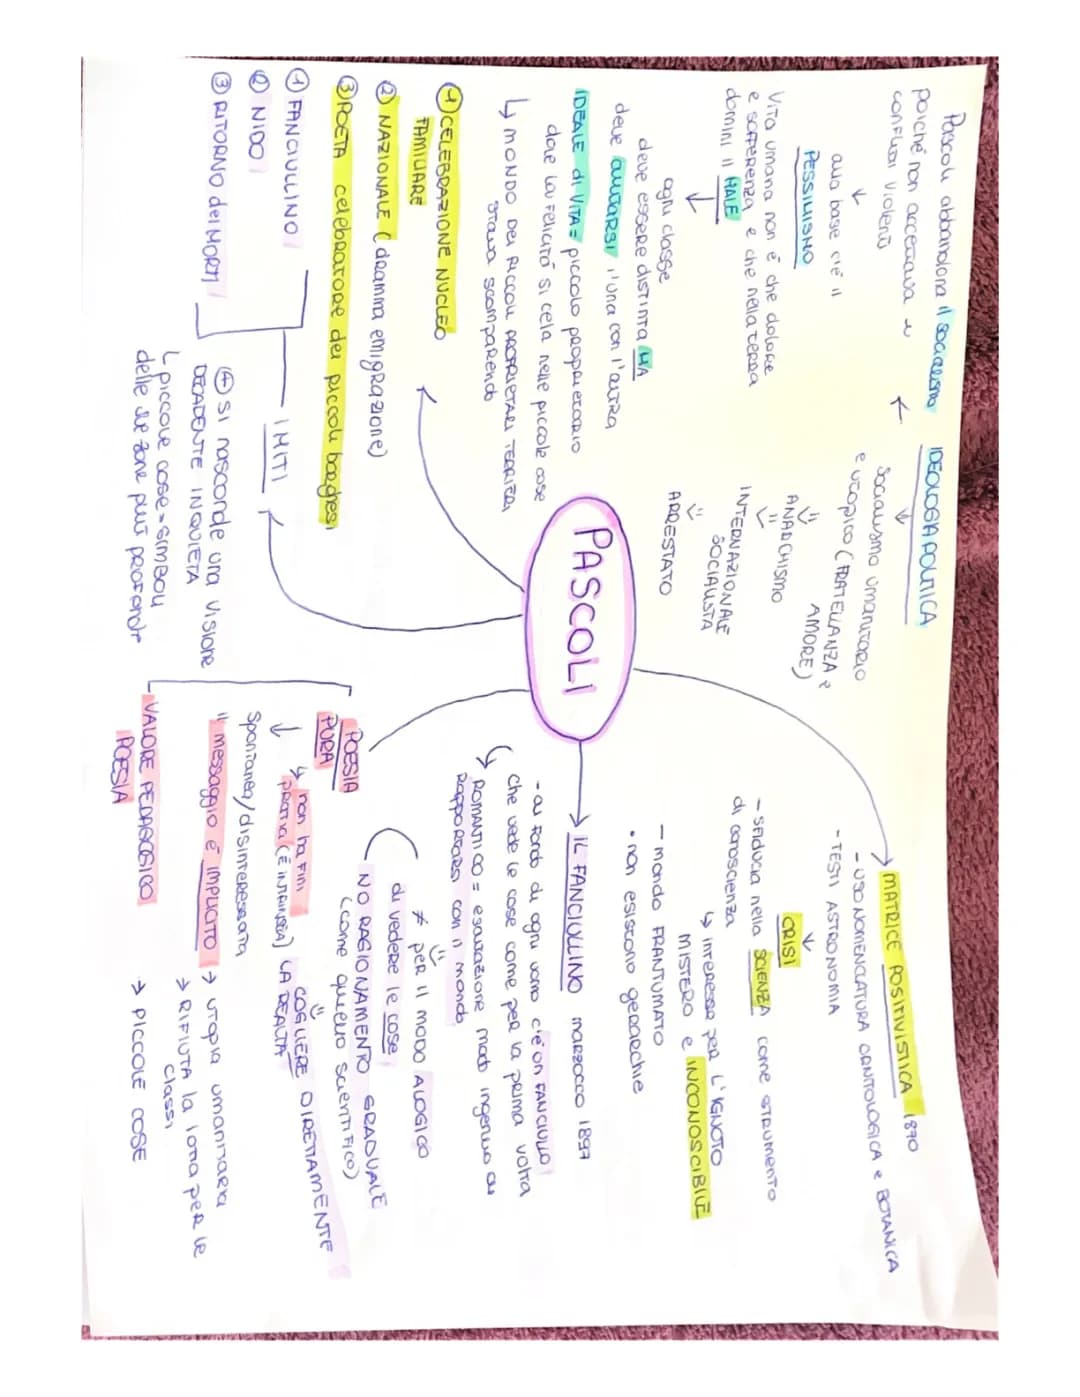 PASCOLI
IDEOLOGIA POLITICA
socialismo umanitario
e utopico (FRATELLANZA e
AMORE)
ANARCHISMO
INTERNAZIONALE
SOCIALISTA
ARRESTATO
Pascoli abbandona il socialismo
poiché non accettava i
conflitti violenti
alla base c'è il
PESSIMISMO
Vita umana non è che dolore
e sofferenza e che nella terra
domini il MALE
ogni classe
deve essere distinta MA
deve aiutarsi l'una con l'altra
IDEALE di VITA = piccolo proprietario
dove la felicità si cela nelle piccole cose
↳ MONDO DEI PICCOLI PROPRIETARI TERRIERI
stava scomparendo
① CELEBRAZIONE NUCLEO
FAMILIARE
② NAZIONALE (dramma emigrazione)
③ POETA celebratore dei piccoli borghesi
I MITI
① FANCIULLINO
② NIDO
③ RITORNO dei MORTI
④ SI nasconde una visione
DECADENTE INQUIETA
↳ piccole cose = simboli
delle sue zone più profonde
MATRICE POSITIVISTICA 1870
- USO NOMENCLATURA ORNITOLOGICA e BOTANICA
- TESTI ASTRONOMIA
CRISI
- sfiducia nella SCIENZA come STRUMENTO
di conoscenza
↳ interesse per L'IGNOTO
MISTERO e INCONOSCIBILE
- mondo FRANTUMATO
• non esistono gerarchie
IL FANCIULLINO marzocco 1897
- al fondo di ogni uomo c'è un FANCIULLO
che vede le cose come per la prima volta
↳ ROMANTICO = esaltazione modo ingenuo di
rapportarsi con il mondo
≠ per il modo ALOGICO
di vedere le cose
NO RAGIONAMENTO GRADUALE
(come quello scientifico)
COGLIERE DIRETTAMENTE
LA REALTÀ
POESIA
PURA
↳ non ha fini
pratici (È INTRINSECA)
spontanea/disinteressata
il messaggio è IMPLICITO → utopia umanitaria
→ RIFIUTA la lotta per le
classi
VALORE PEDAGOGICO → PICCOLE COSE
POESIA